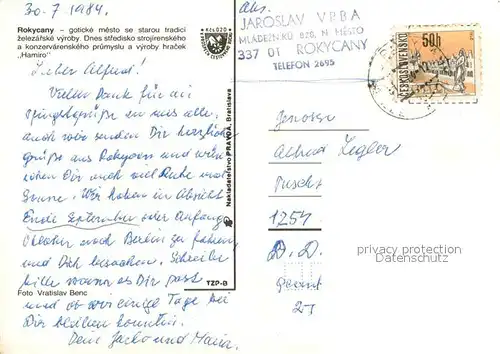 30.7.1984.
Rokycany – gotické město se starou tradicí
železářské výroby. Dnes středisko strojírenského
a konzervárenského průmyslu a výroby hraček
„Hamiro"
Kčs 0,20
Lieber Alfred!
Vielen Dank für die
Pfingstgrüße an uns alle,
auch wir senden Dir herzliche
Grüße aus Rokycany und wün
schen Dir auch viel Ruhe und
Sonne. Wir haben in Absicht
Ende September oder Anfang
Oktober nach Berlin zu fahren
und Dich besuchen. Schreibe
bitte wann es Dir past
und ob wir einige Tage bei
Dir bleiben konnten.
Deine Jarko und Maria.
Foto Vratislav Benc
TZP-B
Nakladatelství PRAVDA, Bratislava
Abs.
JAROSLAV VRBA
MLÁDEŽNÍKŮ 820, N. MĚSTO
337 01 ROKYCANY
TELEFON 2695
ČESKOSLOVENSKO
50h
Genosse
Alfred
1254
D.D.
privacy protection